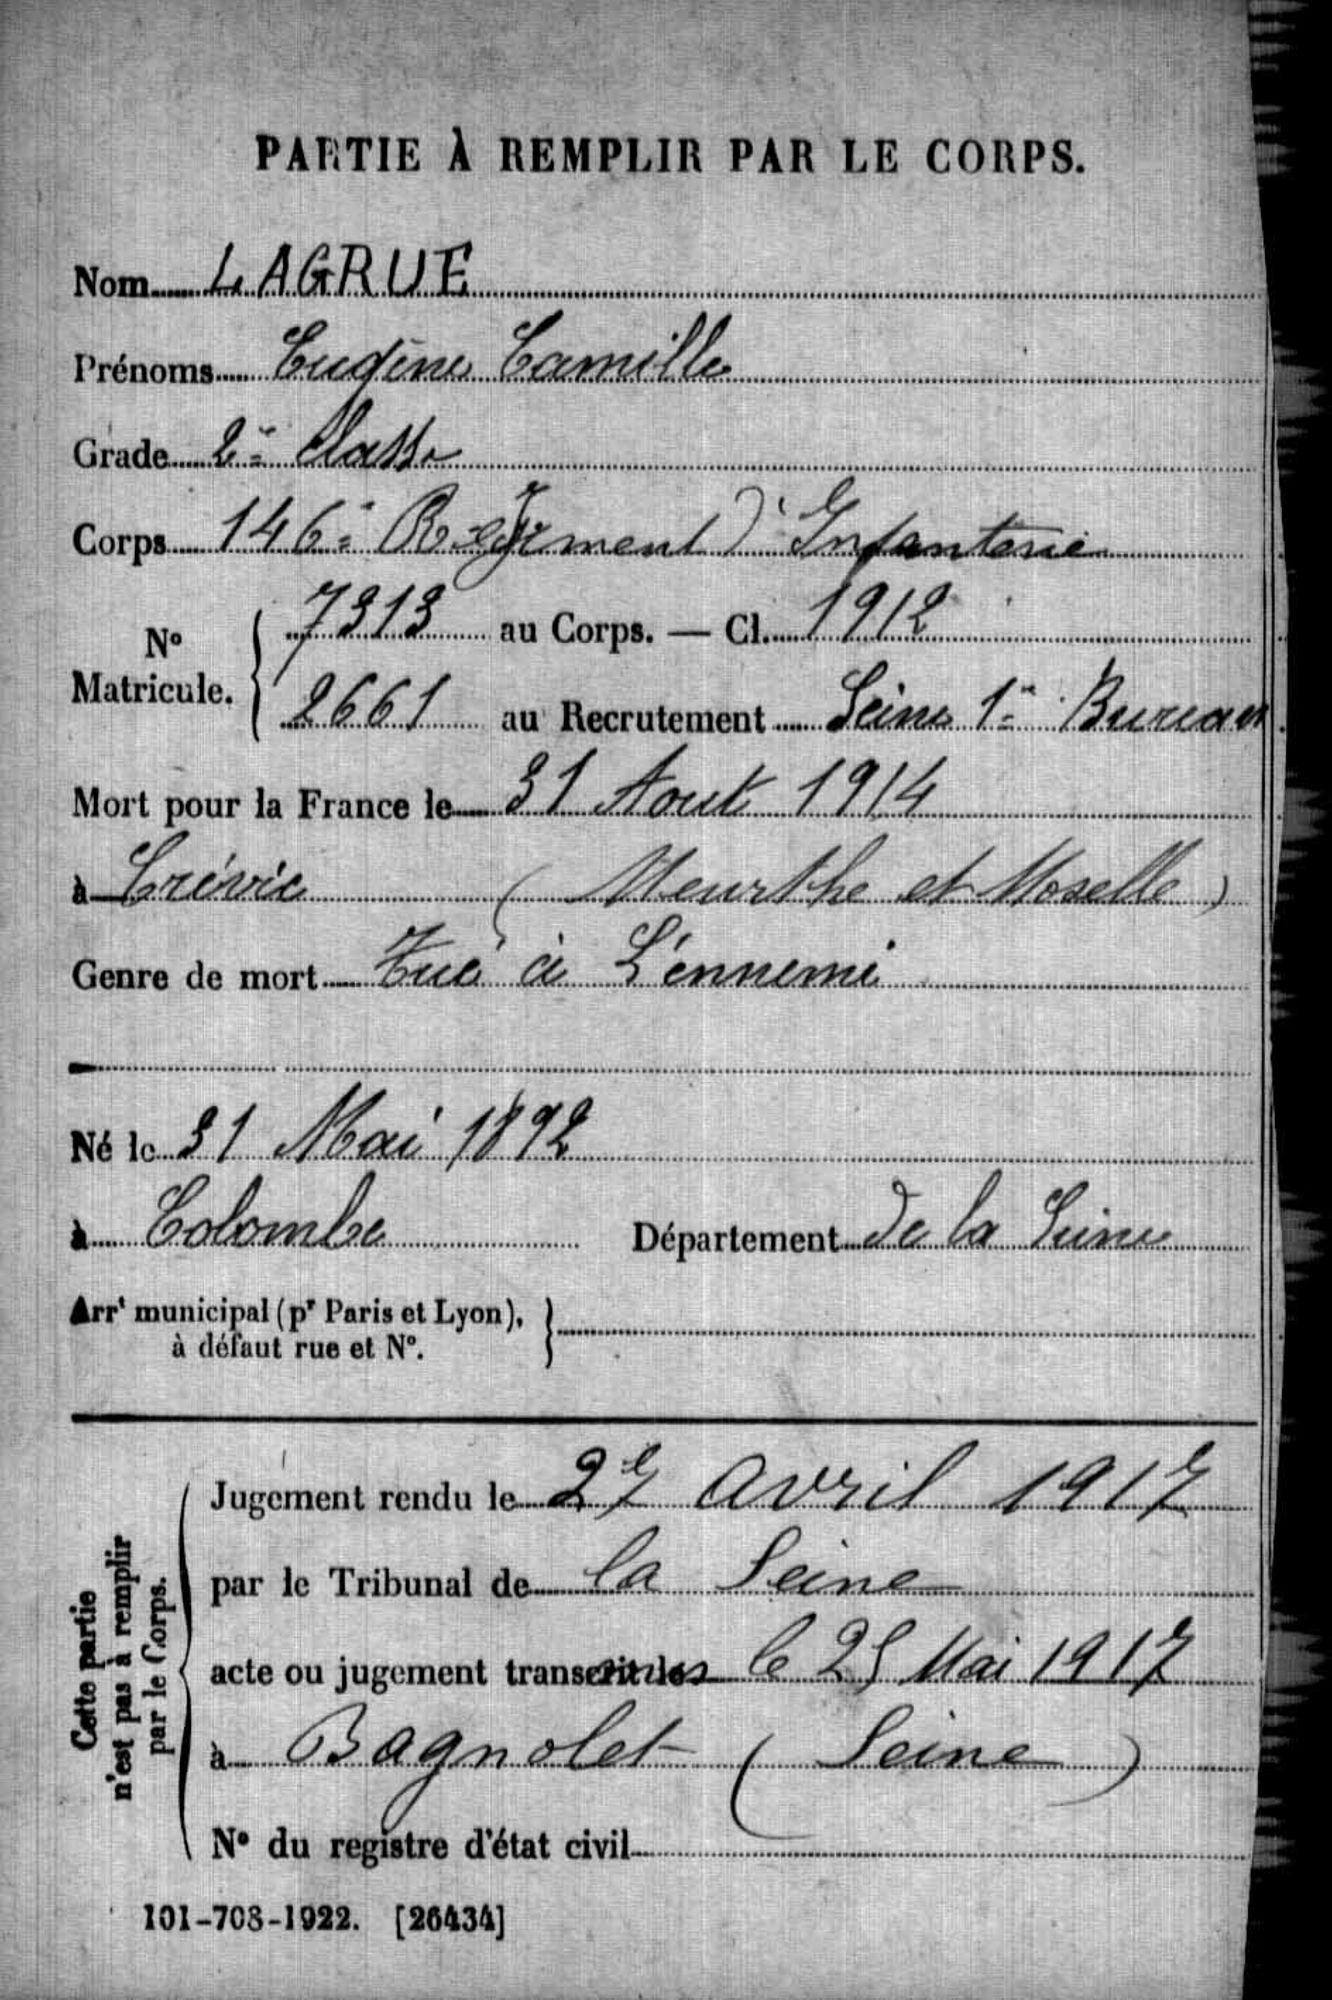 PARTIE À REMPLIR PAR LE CORPS.
Nom LAGRUE
Prénoms Eugène Camille
Grade 2e Classe
Corps 146e Regiment d'Infanterie
No Matricule. { 7313 au Corps. — Cl. 1912
2661 au Recrutement Seine 1er Bureau
Mort pour la France le 31 Aout 1914
à Crévic (Meurthe et Moselle)
Genre de mort Tué à L'ennemi
Né le 31 Mai 1892
à Colombe Département de la Seine
Arrt municipal (pr Paris et Lyon), }
à défaut rue et No.
Cette partie
n'est pas à remplir
par le Corps.
Jugement rendu le 27 avril 1917
par le Tribunal de la Seine
acte ou jugement transcrit le le 25 Mai 1917
à Bagnolet (Seine)
No du registre d'état civil
101-708-1922. [26434]